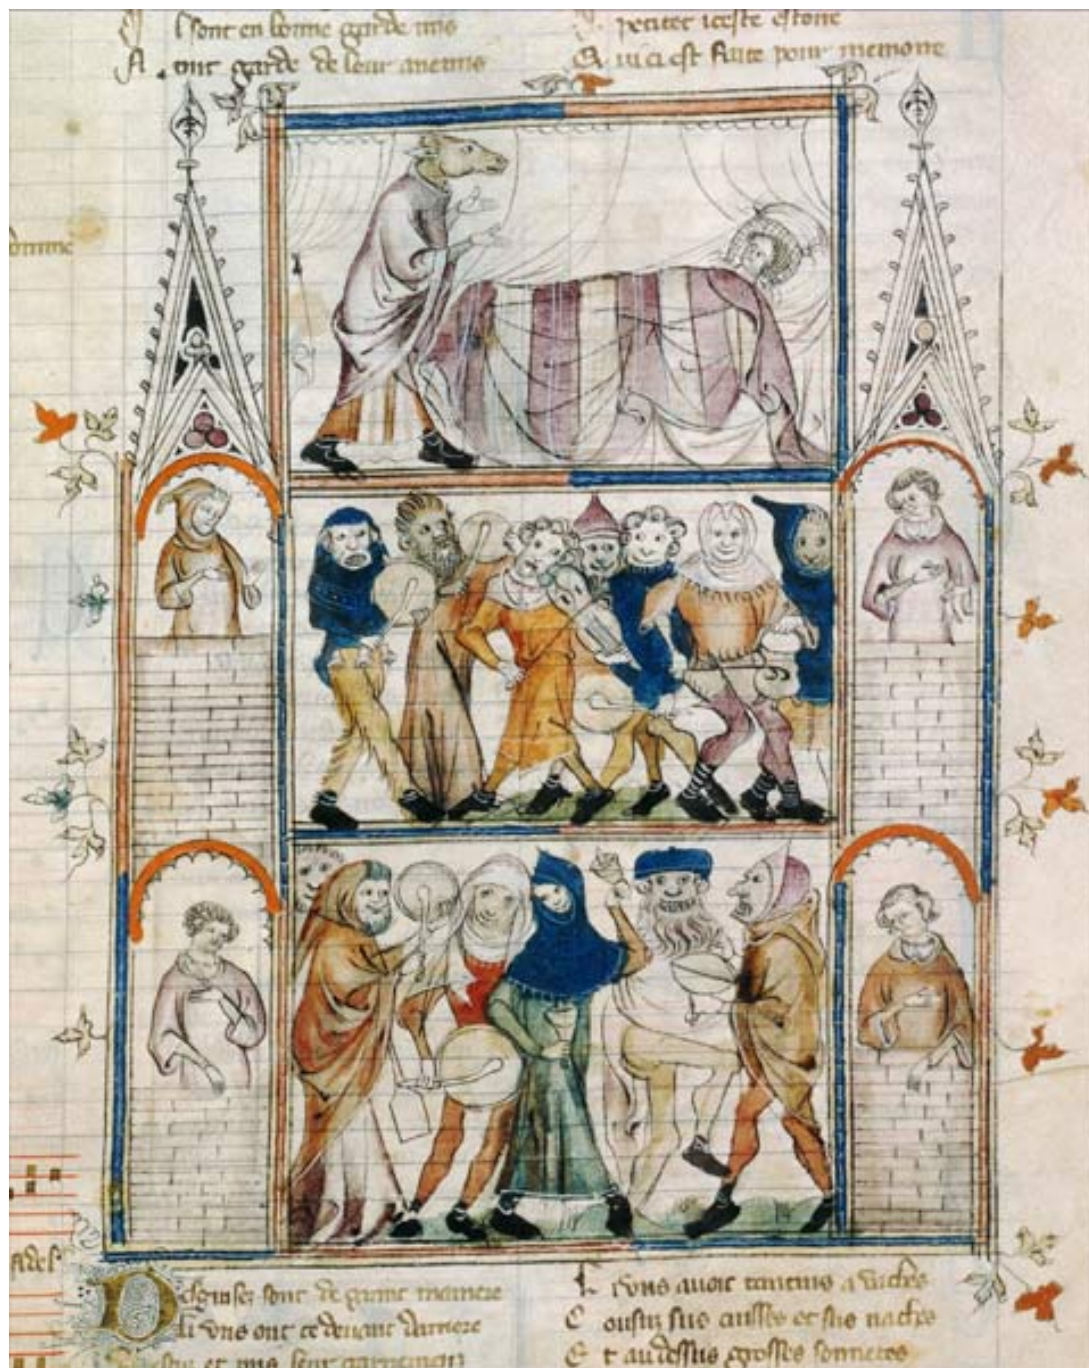 sont en bonne garde mis
ont garde de leur anemis
ceste estoire
Qui ci est faite pour memoire
Desguisez sont de grant maniere
Li uns ont ce devant darriere
Vestu et mis leur garnemenz
Li uns avoit tantins a vaches
Cousuz sus cuisses et sus naches
Et au dessus grosses sonnetes